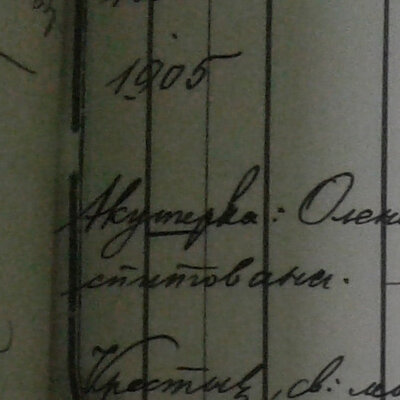 1905
Акушерка: Олен
спитована.
Крестив, св: